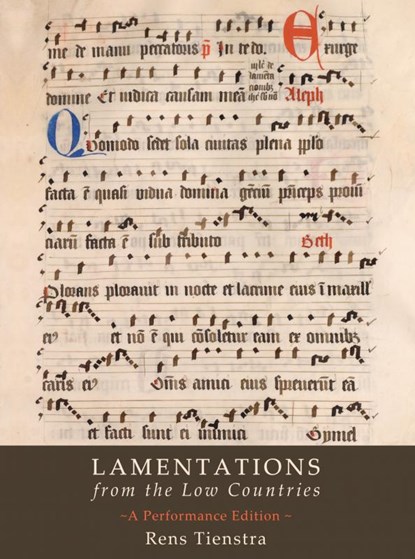 me de manu peccatoris p̄ In te do. Exurge
domine Et iudica causam meā Aleph
Quomodo sedet sola ciuitas plena pplo
facta ē quasi vidua domina gētiū p̄nceps prouī
ciarū facta ē sub tributo Beth
Plorans plorauit in nocte et lacrime eius ī maxill
ei⁹ et nō ē qui cōsoletur eam ex omnibꝫ
caris ei⁹ Om̄s amici eius spreuerūt eā
et facti sunt ei inimici Gymel
LAMENTATIONS
from the Low Countries
~A Performance Edition ~
Rens Tienstra